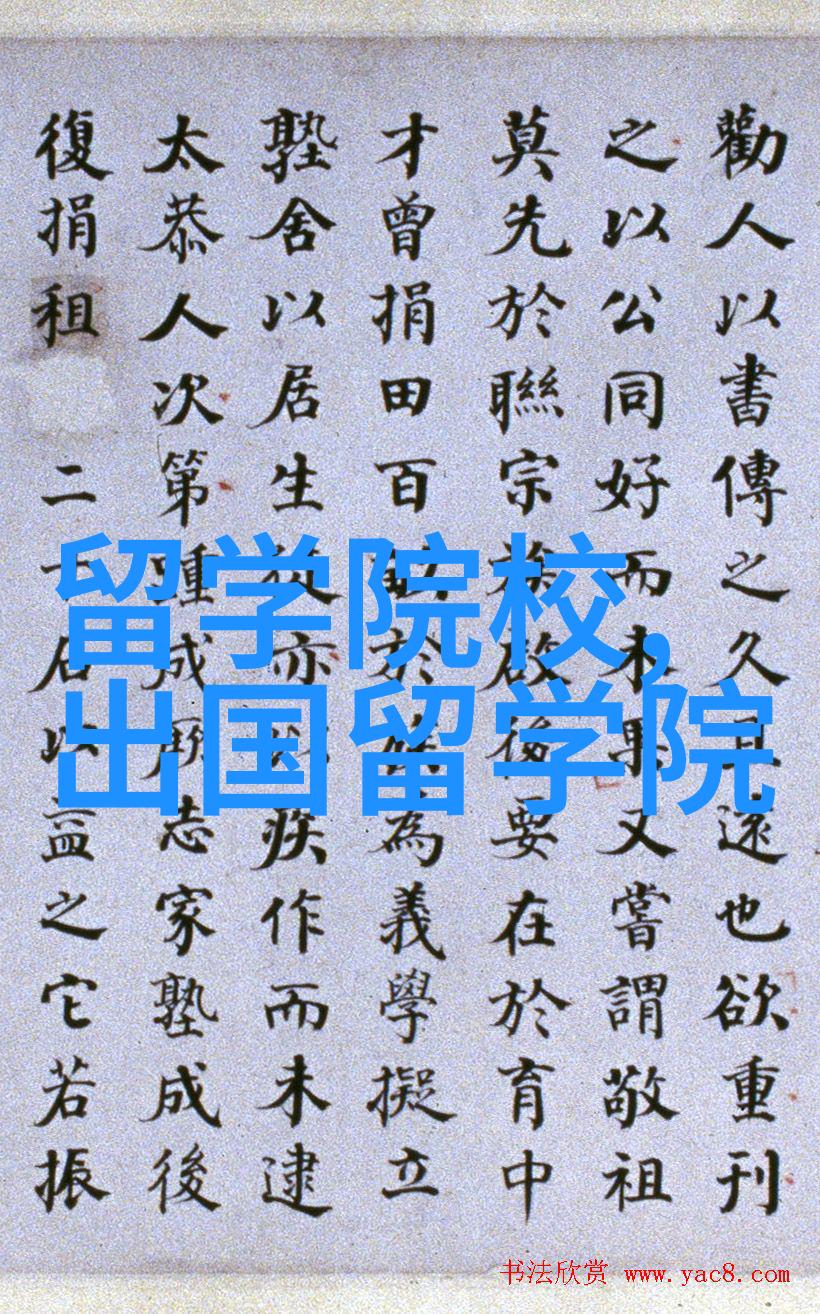 勸人以書傳之久且遠也欲重刊
之以公同好而未果又嘗謂敬祖
莫先於聯宗族啟後要在於育中
才曾捐田百畝於族為義學擬立
塾舍以居生徒亦以疾作而未逮
太恭人次第踵成厥志家塾成後
復捐租二十石以益之它若振
留学院校,
出国留学院
书法欣赏 www.yac8.com